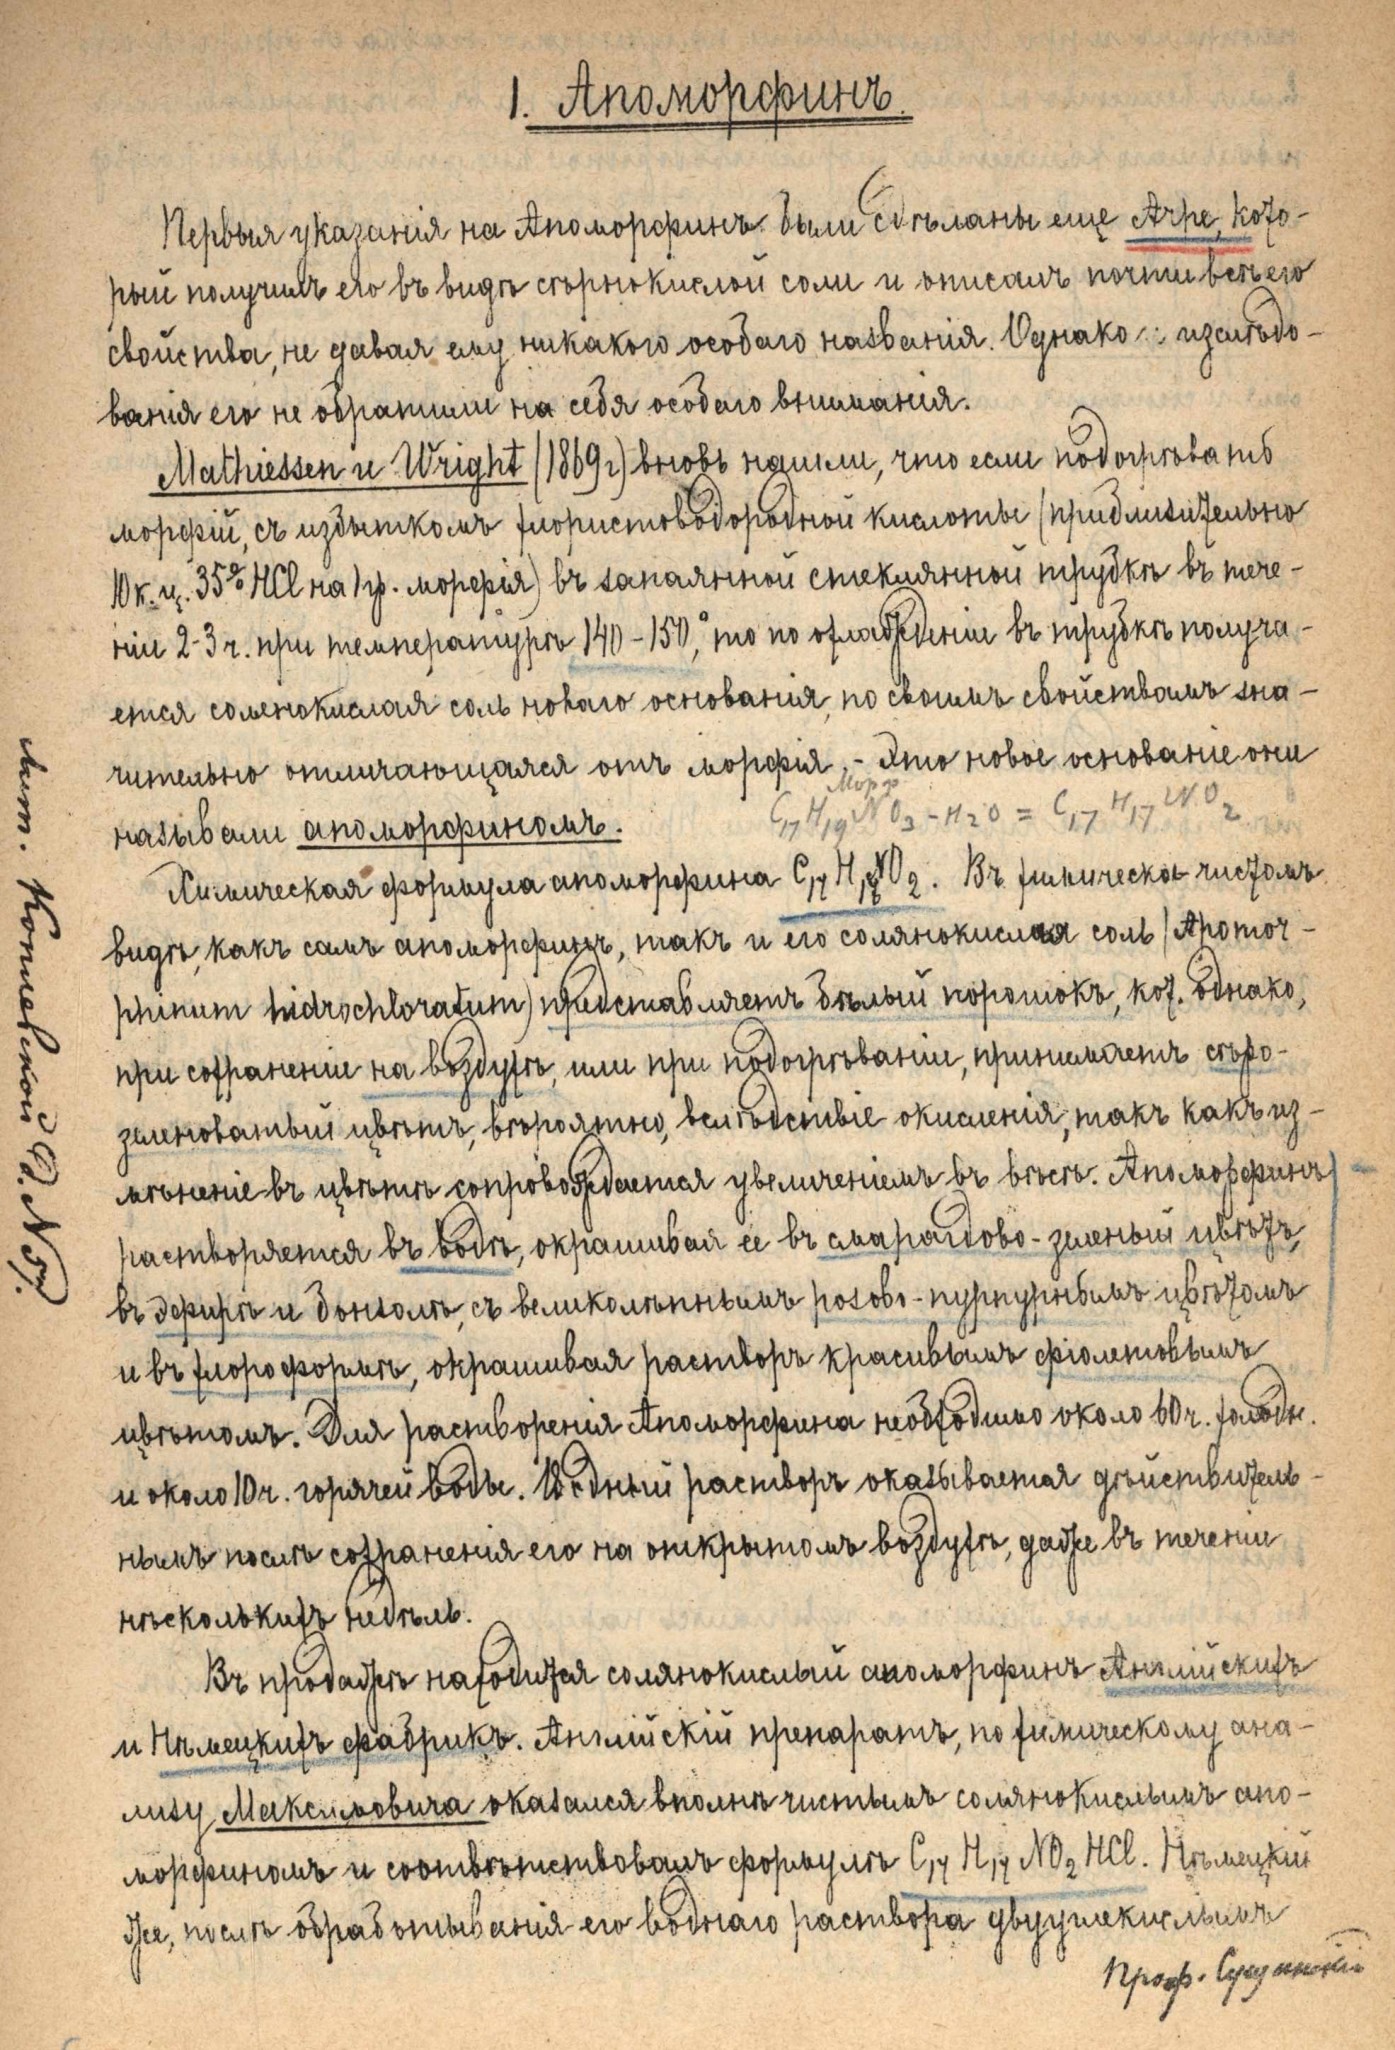 1. Апоморфинъ.
Первыя указанія на Апоморфинъ были сдѣланы еще Arpe, кото-
рый получилъ его въ видѣ сѣрнокислой соли и описалъ почти всѣ его
свойства, не давая ему никакого особаго названія. Однако изслѣдо-
ванія его не обратили на себя особаго вниманія.
Mathiessen и Wright (1869 г) вновь нашли, что если подогрѣвать
морфій, съ избыткомъ хлористоводородной кислоты (приблизительно
10 к. ц. 35% HCl на 1 гр. морфія) въ запаянной стеклянной трубкѣ въ тече-
ніи 2-3 ч. при температурѣ 140-150°, то по охлажденіи въ трубкѣ получа-
ется соленокислая соль новаго основанія, по своимъ свойствамъ зна-
чительно отличающаяся отъ морфія. - Это новое основаніе они
Морф
C17 H19 NO3 - H2O = C17 H17 NO2
назывели апоморфиномъ.
Химическая формула апоморфина C17 H17 NO2. Въ химически чистомъ
видѣ, какъ самъ апоморфинъ, такъ и его солянокислая соль (Apomor-
phinum hidrochloratum) представляетъ бѣлый порошокъ, кот. однако,
при сохраненіи на воздухѣ, или при подогрѣваніи, принимаетъ сѣро-
зеленоватый цвѣтъ, вѣроятно, вслѣдствіе окисленія, такъ какъ из-
мѣненіе въ цвѣтѣ сопровождается увеличеніемъ въ вѣсѣ. Апоморфинъ
растворяется въ водѣ, окрашивая ее въ смарагдово-зеленый цвѣтъ,
въ эфирѣ и бензолѣ, съ великолѣпнымъ розово-пурпурнымъ цвѣтомъ
и въ хлороформѣ, окрашивая растворъ красивымъ фіолетовымъ
цвѣтомъ. Для растворенія Апоморфина необходимо около 60 ч. холодн.
и около 10 ч. горячей воды. Водный растворъ оказывается дѣйствитель-
нымъ послѣ сохраненія его на открытомъ воздухѣ, даже въ теченіи
нѣсколькихъ недѣль.
Въ продажѣ находится солянокислый апоморфинъ Англійскихъ
и Нѣмецкихъ фабрикъ. Англійскій препаратъ, по химическому ана-
лизу Максимовича оказался вполнѣ чистымъ солянокислымъ апо-
морфиномъ и соотвѣтствовалъ формулѣ C17 H17 NO2 HCl. Нѣмецкій
же, послѣ обработыванія его воднаго раствора двууглекислымъ
Проф.
Лит. Копчевской